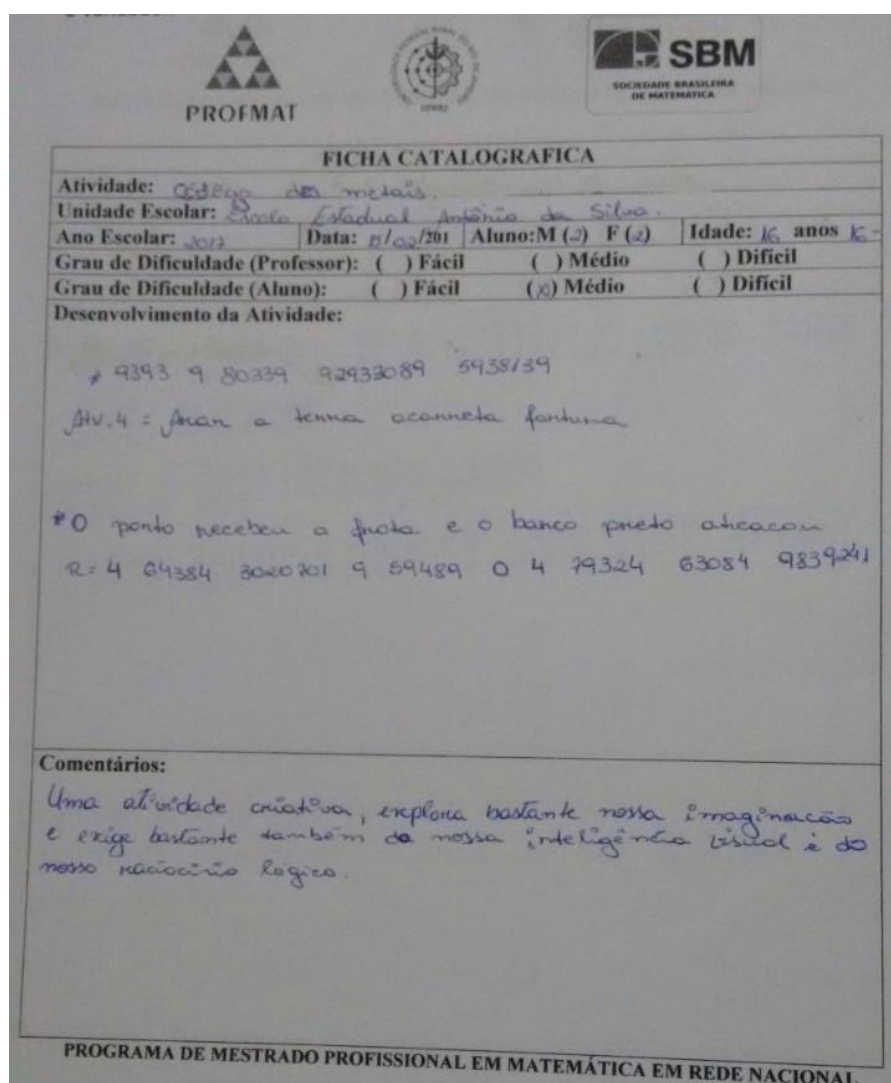 PROFMAT
UFRRJ
SBM
SOCIEDADE BRASILEIRA
DE MATEMÁTICA
FICHA CATALOGRAFICA
Atividade: Código dos metais.
Unidade Escolar: Escola Estadual Antônio da Silva.
Ano Escolar: 2017 Data: /02/201 Aluno:M (2) F (2) Idade: 16 anos 16-
Grau de Dificuldade (Professor): ( ) Fácil ( ) Médio ( ) Difícil
Grau de Dificuldade (Aluno): ( ) Fácil (x) Médio ( ) Difícil
Desenvolvimento da Atividade:
* 9393 9 80339 92933089 5938139
Atv.4 = Arar a terra acarreta fortuna
*O porto recebeu a frota e o barco preto atracou
R= 4 64384 3020701 9 59489 0 4 79324 63084 9839241
Comentários:
Uma atividade criativa, explora bastante nossa imaginação
e exige bastante também da nossa inteligência visual e do
nosso raciocínio lógico.
PROGRAMA DE MESTRADO PROFISSIONAL EM MATEMÁTICA EM REDE NACIONAL